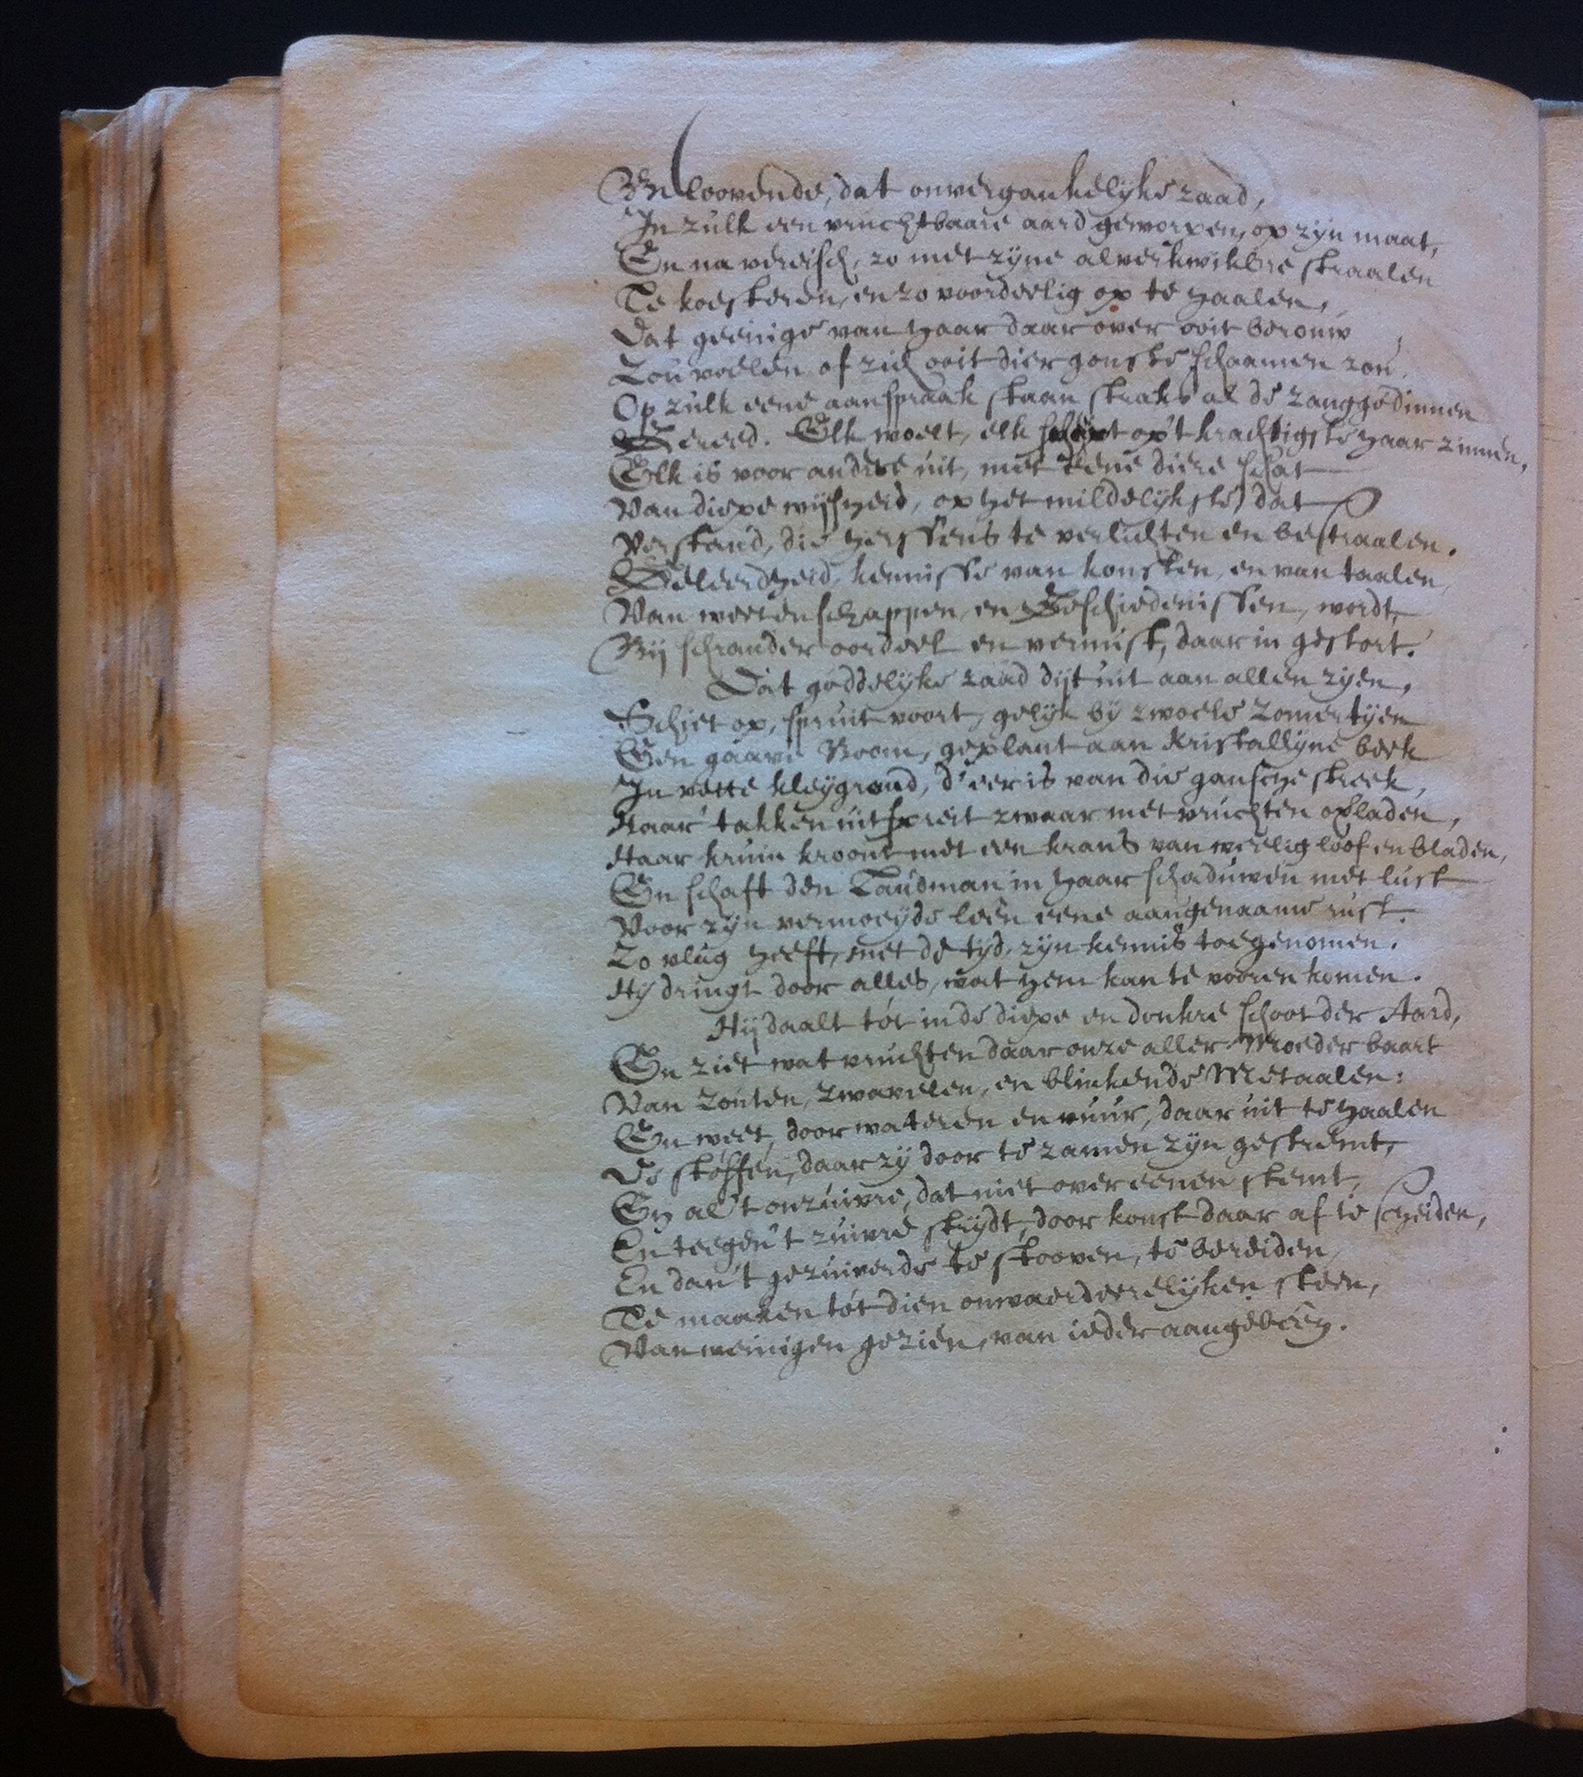 Beloovende, dat onvergankelyke zaad,
In zulk een vruchtbaare aard geworpen, op zyn maat,
En na vereisch, zo met zyne alverkwikbre straalen
Te koesteren, en zo voordeelig op te haalen,
Dat geenige van haar daar over ooit berouw
Zou voelen of zich ooit dier gonste schaamen zou.
Op zulk eene aanspraak staan straks al de zanggodinnen
Gereed. Elk woelt, elk scherpt op't krachtigste haar zinnen,
Elk is voor andre uit, met eene diere schat
Van diepe wysheid, op het mildelykste, dat
Verstand, die herssens te verlichten en bestraalen.
Geleerdheid, kennisse van konsten, en van taalen,
Van weetenschappen, en Geschiedenissen, wordt,
By schrander oordeel en vernuft, daar in gestort.
Dat goddelyke zaad dijt uit aan allen zyen,
Schiet op, spruit voort, gelyk by zwoele zomertyen
Een gaave Boom, geplant aan kristallyne beek
In vette kleygrond, d'eer is van die gansche streek,
Haar' takken uitspreit zwaar met vruchten opladen,
Haar kruin kroont met een krans van weelig loof en bladen,
En schaft den Landman in haar schaduwen met lust
Voor zyn vermoeyde leên eene aangenaame rust.
Zo vlug heeft, met de tyd, zyn kennis toegenomen.
Hy dringt door alles, wat hem kan te vooren komen.
Hij daalt tot in de diepe en donkre schoot der Aard,
En ziet wat vruchten daar onze aller Moeder baart
Van Zouten, Zwavelen, en blinkende Metaalen:
En weet, door wateren en vuur, daar uit te haalen
De stoffen, daar zy door te zamen zyn gestremt,
En al 't onzuivre, dat niet over eenen stemt,
En teegen 't zuivre strydt, door konst daar af te scheiden,
En dan 't gezuiverde te stooven, te bereiden,
Te maaken tot dien onwaerdeerelyken steen,
Van weinigen gezien, van ieder aangebeên.